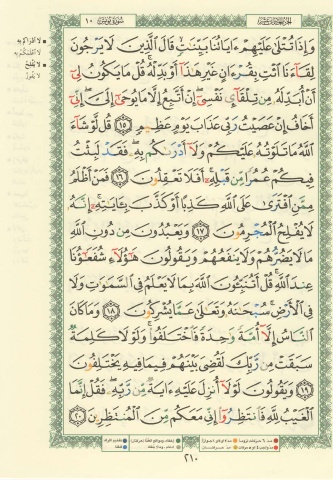 سورة يونس ١٠
الجزء الحادي عشر
وَإِذَا تُتْلَىٰ عَلَيْهِمْ ءَايَاتُنَا بَيِّنَٰتٍ قَالَ ٱلَّذِينَ لَا يَرْجُونَ
لِقَآءَنَا ٱئْتِ بِقُرْءَانٍ غَيْرِ هَٰذَآ أَوْ بَدِّلْهُ قُلْ مَا يَكُونُ لِىٓ
أَنْ أُبَدِّلَهُۥ مِن تِلْقَآئِ نَفْسِىٓ إِنْ أَتَّبِعُ إِلَّا مَا يُوحَىٰٓ إِلَىَّ إِنِّىٓ
أَخَافُ إِنْ عَصَيْتُ رَبِّى عَذَابَ يَوْمٍ عَظِيمٍ ١٥ قُل لَّوْ شَآءَ
ٱللَّهُ مَا تَلَوْتُهُۥ عَلَيْكُمْ وَلَآ أَدْرَىٰكُم بِهِۦ فَقَدْ لَبِثْتُ
فِيكُمْ عُمُرًا مِّن قَبْلِهِۦٓ أَفَلَا تَعْقِلُونَ ١٦ فَمَنْ أَظْلَمُ
مِمَّنِ ٱفْتَرَىٰ عَلَى ٱللَّهِ كَذِبًا أَوْ كَذَّبَ بِـَٔايَٰتِهِۦٓ إِنَّهُۥ
لَا يُفْلِحُ ٱلْمُجْرِمُونَ ١٧ وَيَعْبُدُونَ مِن دُونِ ٱللَّهِ
مَا لَا يَضُرُّهُمْ وَلَا يَنفَعُهُمْ وَيَقُولُونَ هَٰٓؤُلَآءِ شُفَعَٰٓؤُنَا
عِندَ ٱللَّهِ قُلْ أَتُنَبِّـُٔونَ ٱللَّهَ بِمَا لَا يَعْلَمُ فِى ٱلسَّمَٰوَٰتِ وَلَا
فِى ٱلْأَرْضِ سُبْحَٰنَهُۥ وَتَعَٰلَىٰ عَمَّا يُشْرِكُونَ ١٨ وَمَا كَانَ
ٱلنَّاسُ إِلَّآ أُمَّةً وَٰحِدَةً فَٱخْتَلَفُوا۟ وَلَوْلَا كَلِمَةٌ
سَبَقَتْ مِن رَّبِّكَ لَقُضِىَ بَيْنَهُمْ فِيمَا فِيهِ يَخْتَلِفُونَ
١٩ وَيَقُولُونَ لَوْلَآ أُنزِلَ عَلَيْهِ ءَايَةٌ مِّن رَّبِّهِۦ فَقُلْ إِنَّمَا
ٱلْغَيْبُ لِلَّهِ فَٱنتَظِرُوٓا۟ إِنِّى مَعَكُم مِّنَ ٱلْمُنتَظِرِينَ ٢٠
٢١٠